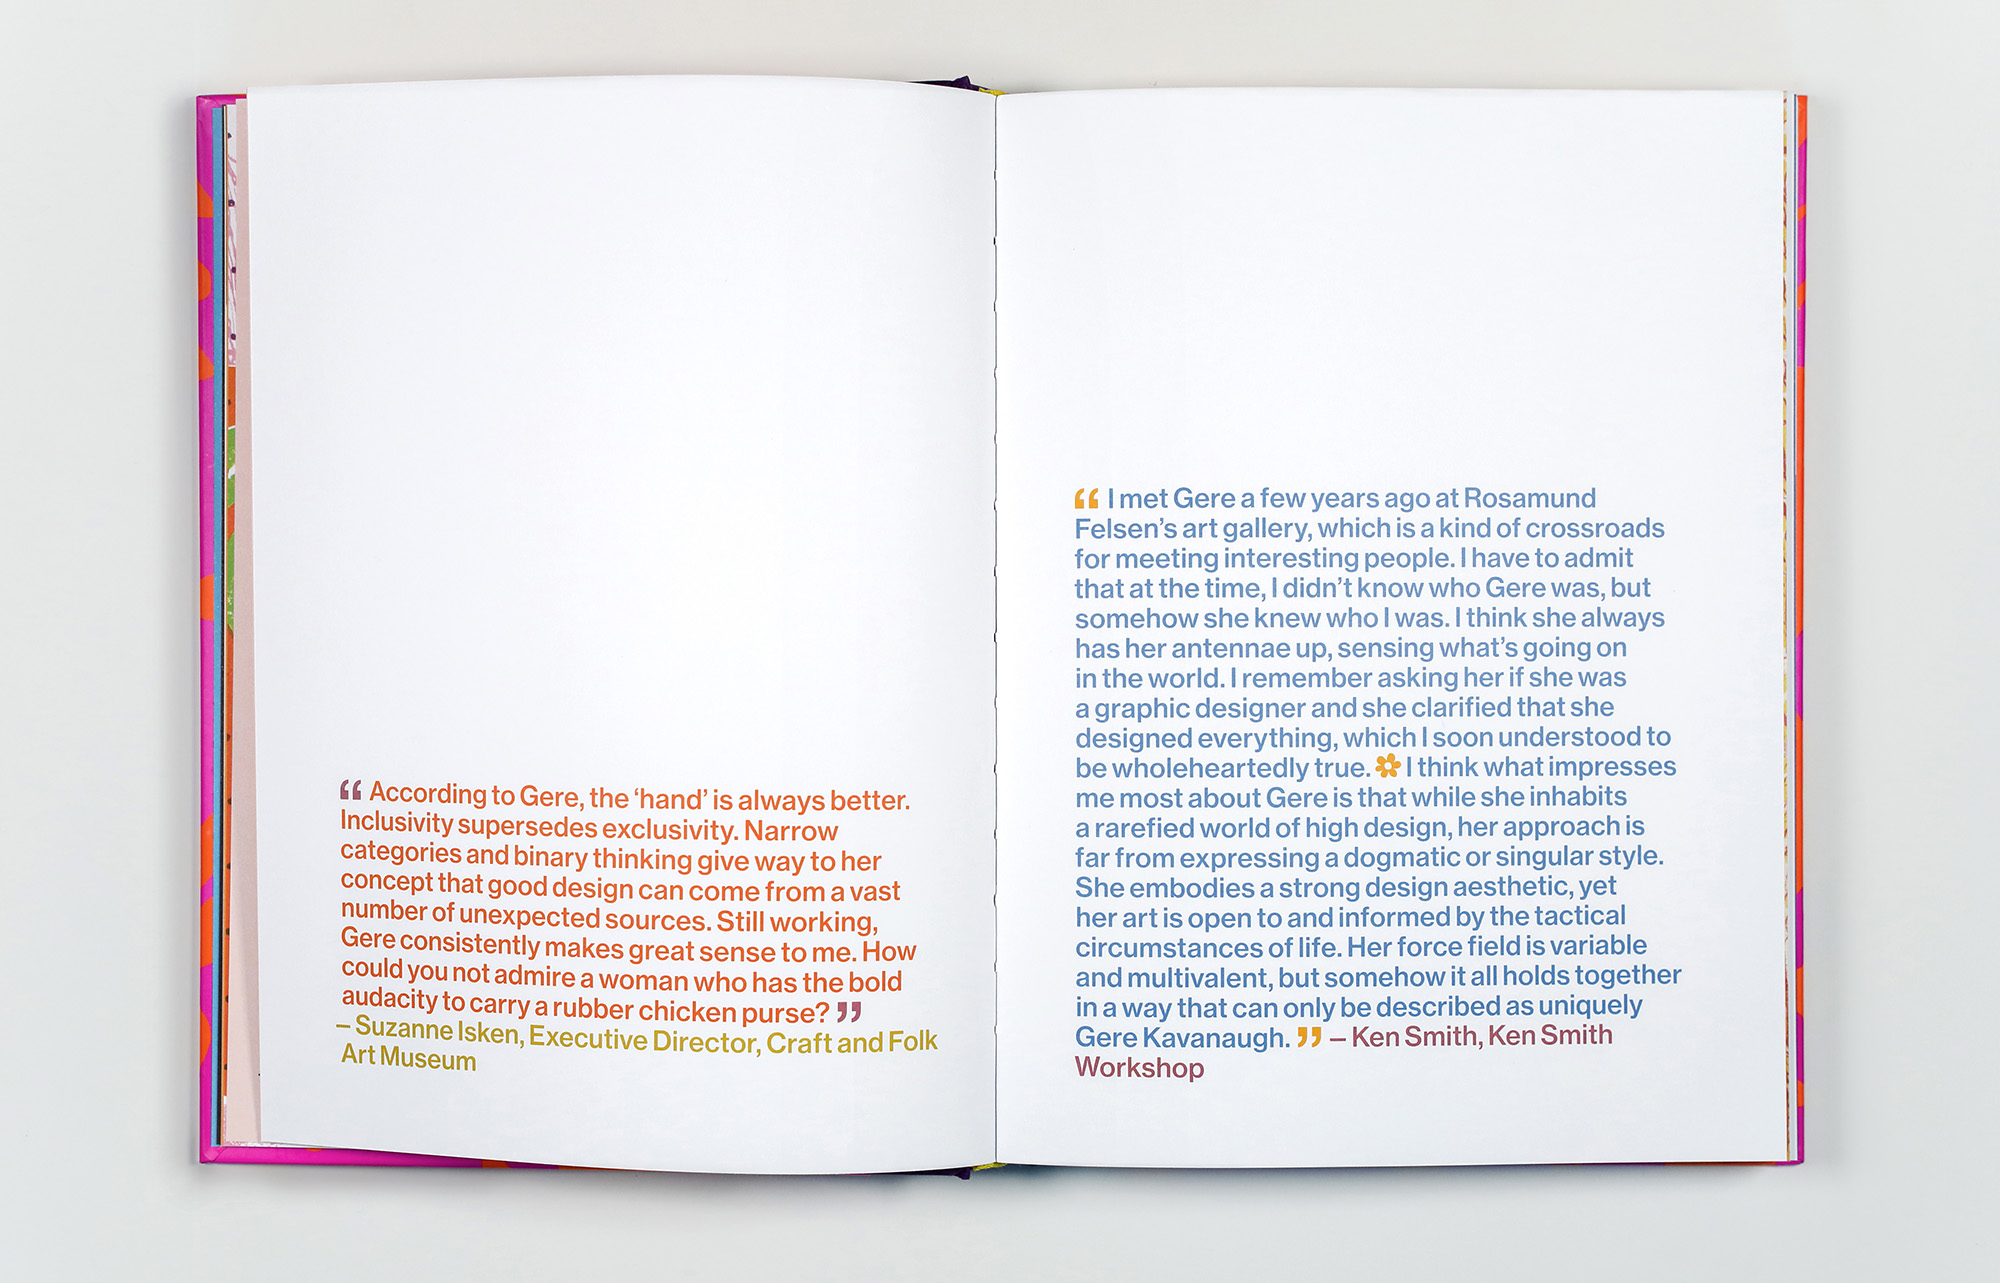 “ According to Gere, the ‘hand’ is always better.
Inclusivity supersedes exclusivity. Narrow
categories and binary thinking give way to her
concept that good design can come from a vast
number of unexpected sources. Still working,
Gere consistently makes great sense to me. How
could you not admire a woman who has the bold
audacity to carry a rubber chicken purse? ”
– Suzanne Isken, Executive Director, Craft and Folk
Art Museum
“ I met Gere a few years ago at Rosamund
Felsen’s art gallery, which is a kind of crossroads
for meeting interesting people. I have to admit
that at the time, I didn’t know who Gere was, but
somehow she knew who I was. I think she always
has her antennae up, sensing what’s going on
in the world. I remember asking her if she was
a graphic designer and she clarified that she
designed everything, which I soon understood to
be wholeheartedly true. I think what impresses
me most about Gere is that while she inhabits
a rarefied world of high design, her approach is
far from expressing a dogmatic or singular style.
She embodies a strong design aesthetic, yet
her art is open to and informed by the tactical
circumstances of life. Her force field is variable
and multivalent, but somehow it all holds together
in a way that can only be described as uniquely
Gere Kavanaugh. ” – Ken Smith, Ken Smith
Workshop